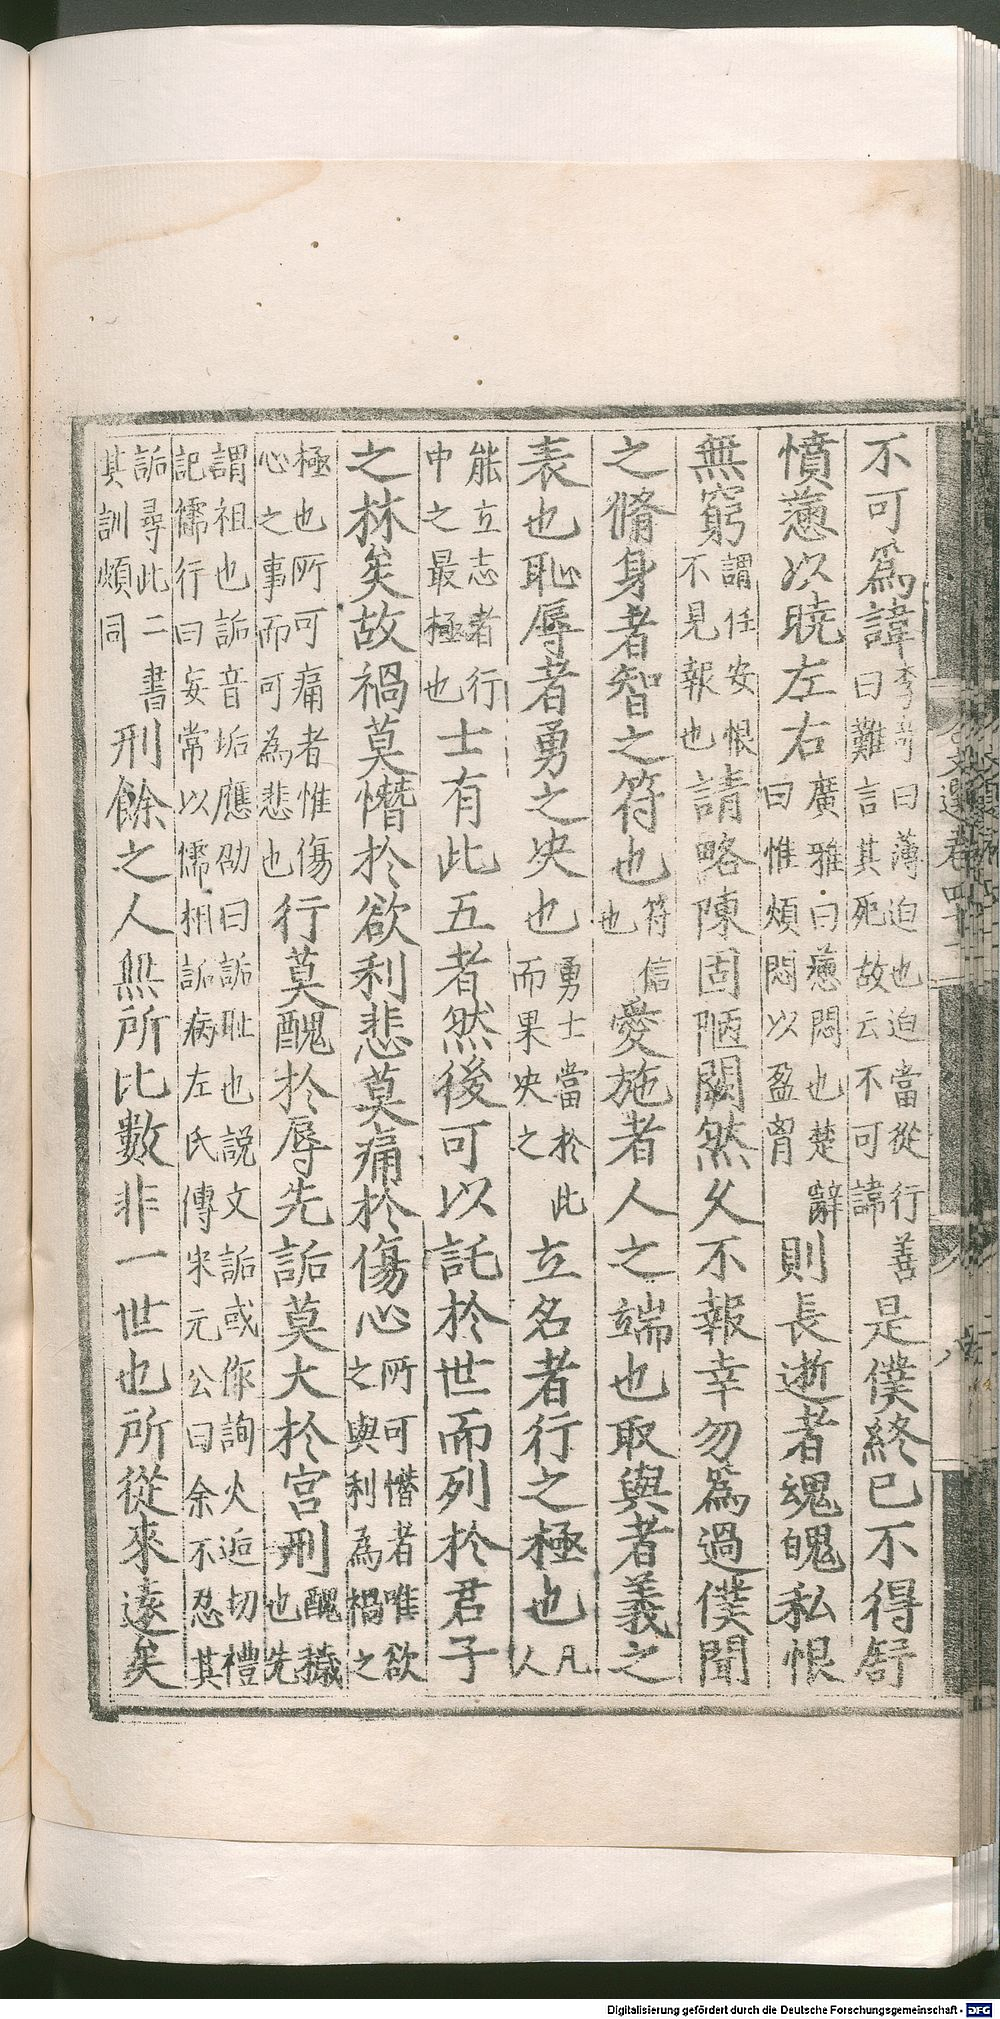 不可爲諱李奇曰薄迫也迫當從行善曰難言其死故云不可諱是僕終已不得舒
憤懣以曉左右廣雅曰懣悶也楚辭曰惟煩悶以盈胷則長逝者魂魄私恨
無窮謂任安恨不見報也請略陳固陋闕然久不報幸勿爲過僕聞
之脩身者智之符也符信也愛施者人之端也取與者義之
表也恥辱者勇之决也勇士當於此而果决之立名者行之極也凡人
能立志者行中之最極也士有此五者然後可以託於世而列於君子
之林矣故禍莫憯於欲利悲莫痛於傷心所可憯者唯欲之與利為禍之
極也所可痛者惟傷心之事而可為悲也行莫醜於辱先詬莫大於宮刑醜穢也先
謂祖也詬音垢應劭曰詬耻也説文詬或作詢火逅切禮記儒行曰妄常以儒相詬病左氏傳宋元公曰余不忍其
詬尋此二書其訓頗同刑餘之人無所比數非一世也所從來遠矣
Digitalisierung gefördert durch die Deutsche Forschungsgemeinschaft - DFG